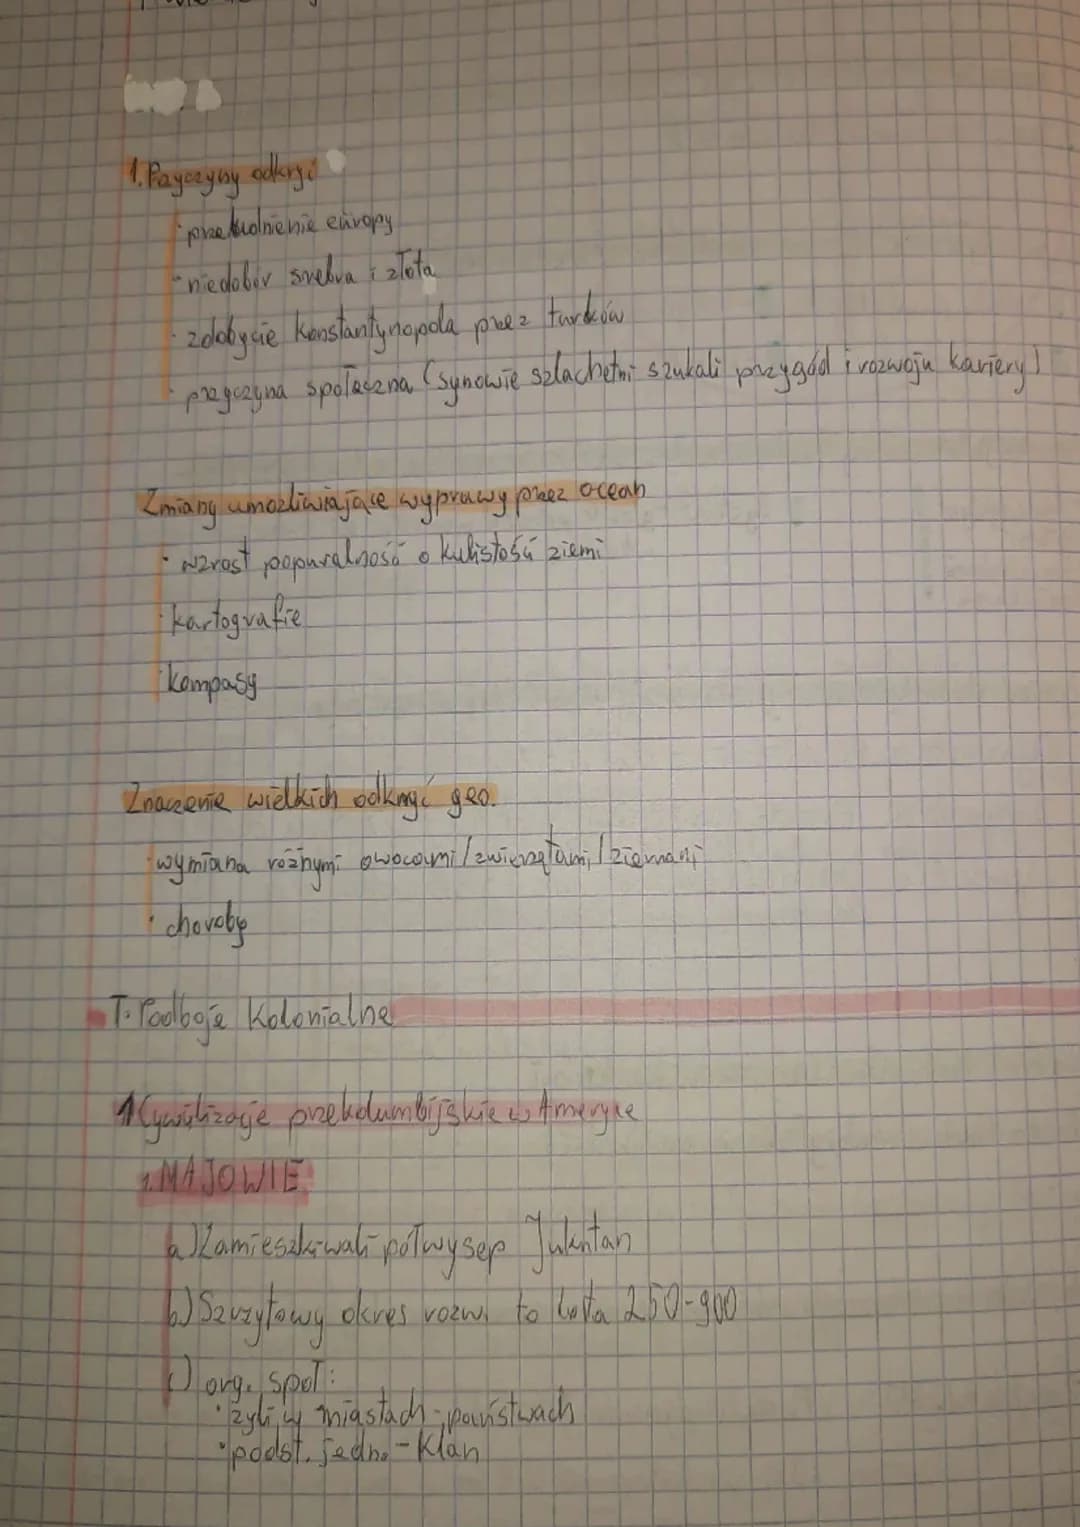 1. Przyczyny odkryć
- przeludnienie europy
- niedobór srebra i złota
- zdobycie Konstantynopola przez turków
- przyczyna społeczna (synowie szlachetni szukali przygód i rozwoju kariery)
Zmiany umożliwiające wyprawy przez ocean
• wzrost popuralność o kulistość ziemi
• kartografie
• kompasy
Znaczenie wielkich odkryć geo.
• wymiana różnymi owocami/zwierzętami/ziemami
• choroby
T: Podboje Kolonialne
1 Cywilizacje przekolumbijskie w Ameryce
1. MAJOWIE
a) Zamieszkiwali półwysep Jukatan
b) Szczytowy okres rozw. to lata 250-900
c) org. społ:
• żyli w miastach-państwach
• podst. jedn. - klan